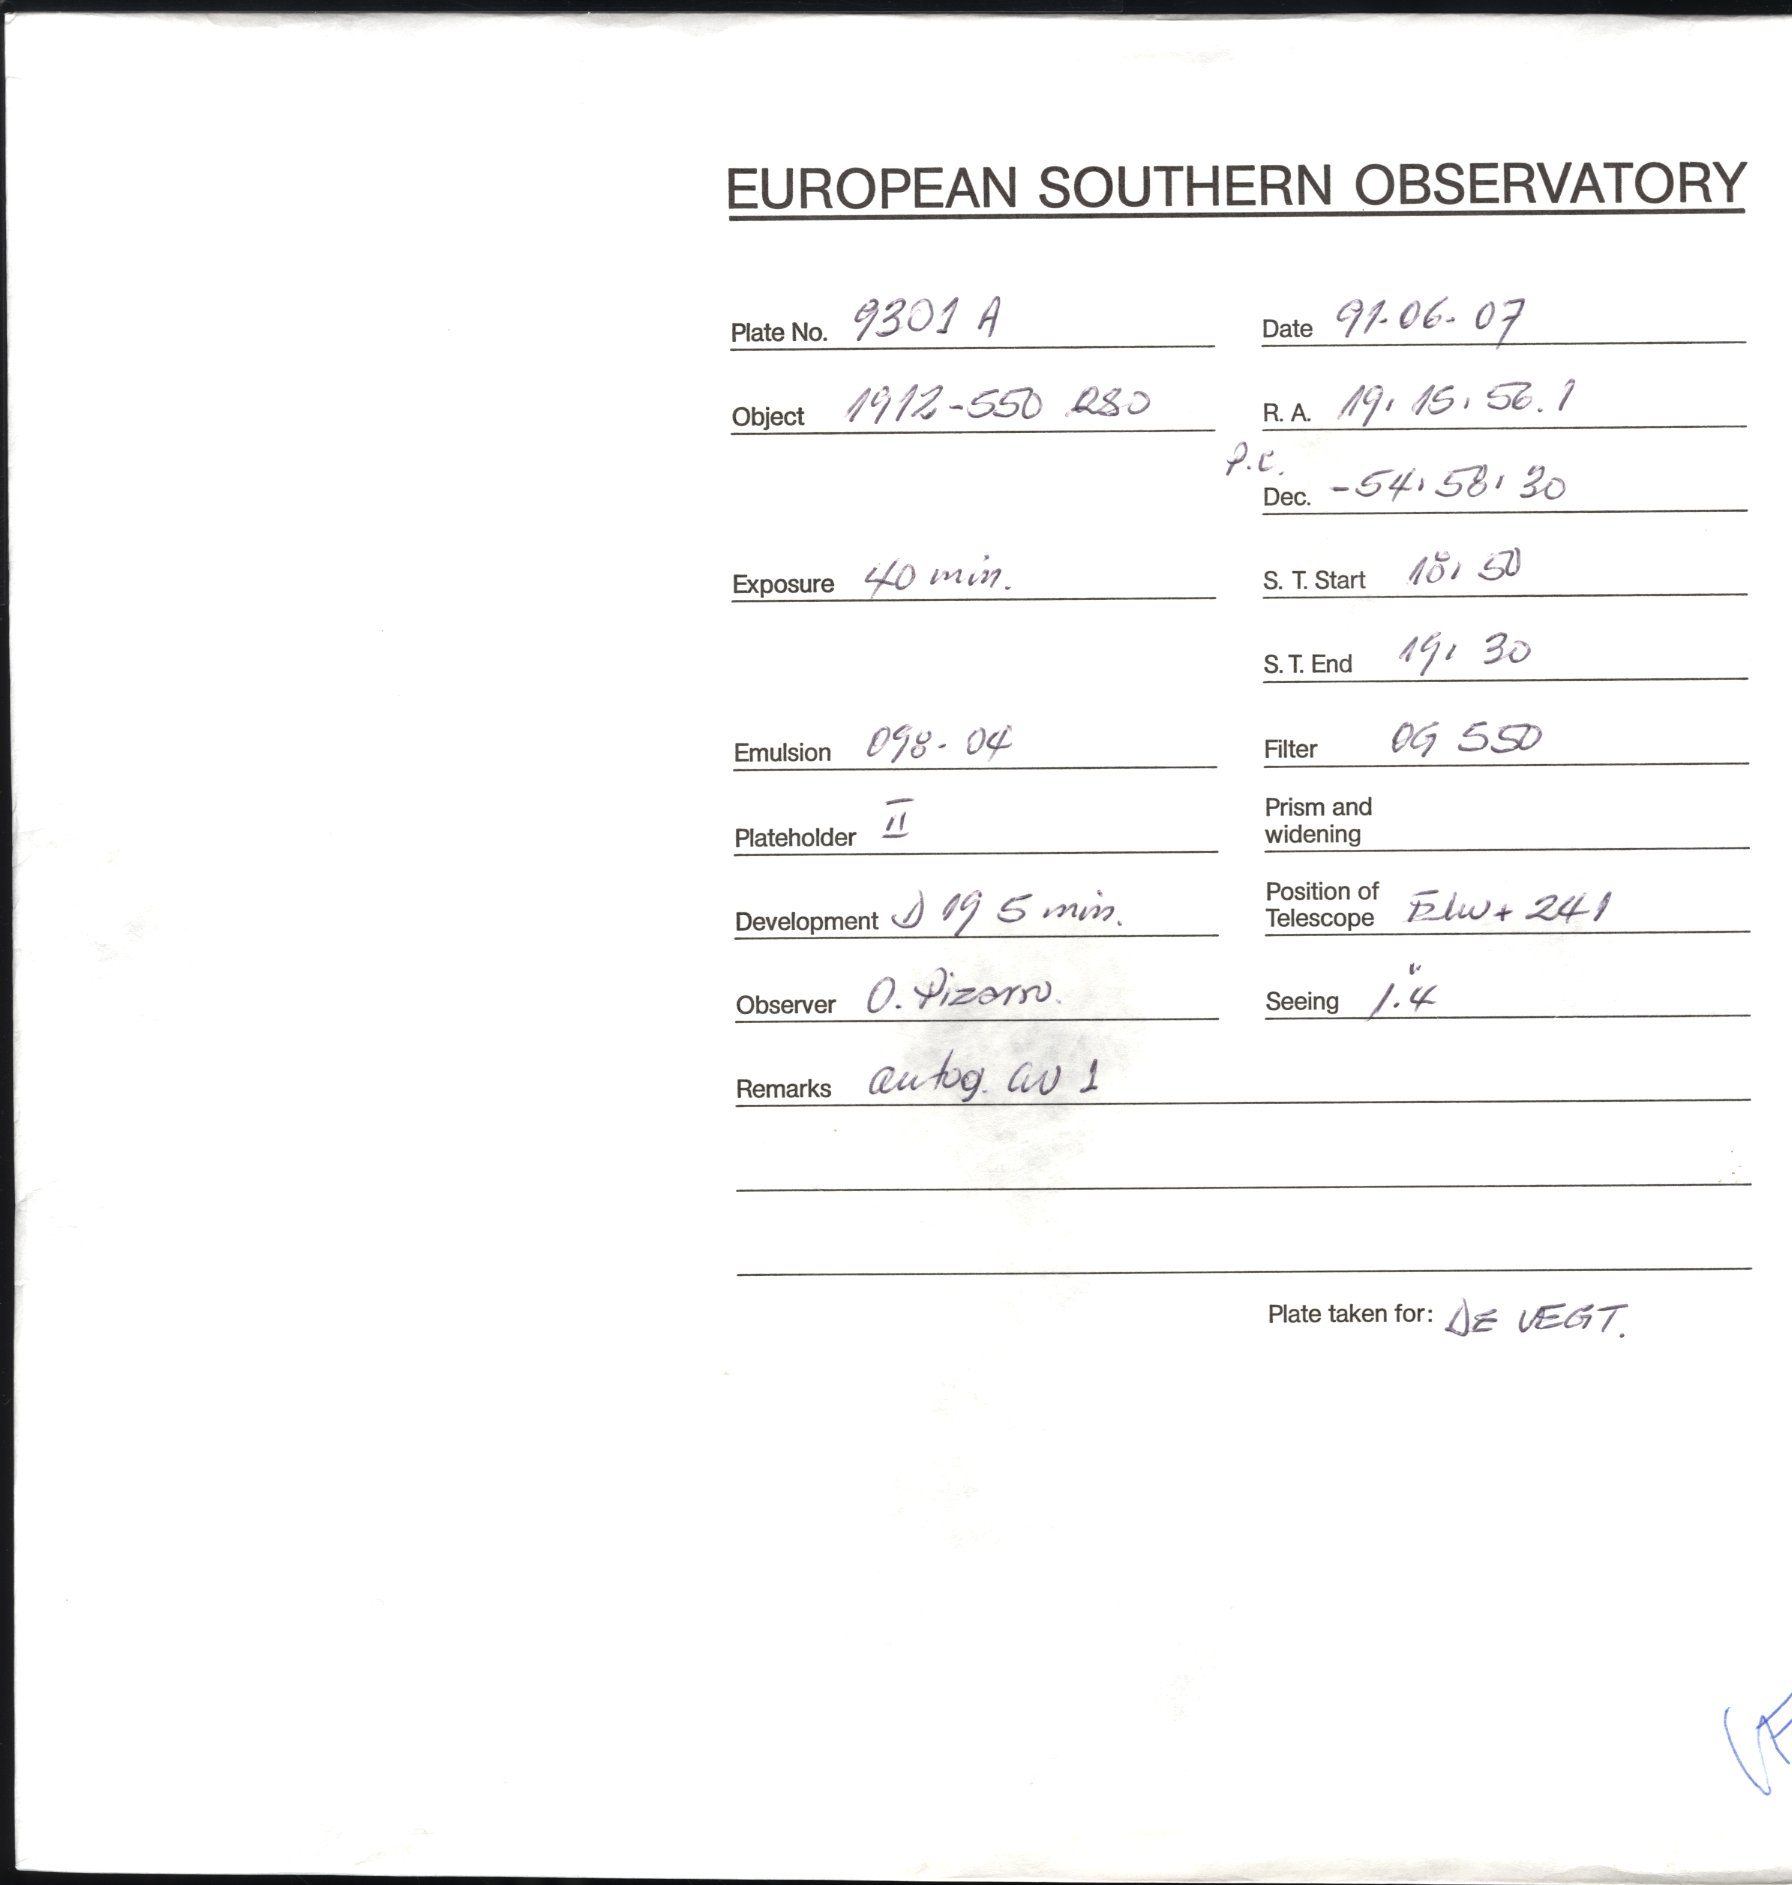 EUROPEAN SOUTHERN OBSERVATORY
Plate No. 9301 A Date 91-06-07
Object 1912-550 RSO R. A. 19, 15, 56.1
P.C.
Dec. -54, 58, 30
Exposure 40 min. S. T. Start 18, 50
S. T. End 19, 30
Emulsion 098-04 Filter OG 550
Plateholder II Prism and
widening
Development D 19 5 min. Position of
Telescope + 241
Observer O. Pizarro. Seeing 1.″4
Remarks autog. 1
Plate taken for: DE VEGT.